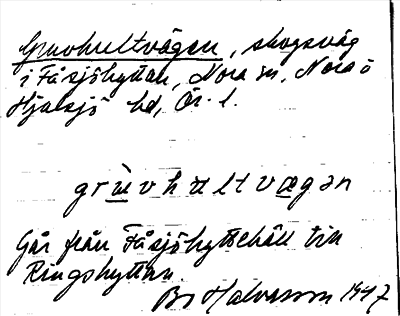 Gruvhultvägen, skogsväg
i Fåsjöhyttan, Nora sn, Nora o
Hjulsjö hd, Ör. l.
grùvhultvægən
Går från Fåsjöhyttehåll till
Ringshyttan.
Bo Halvarson 1947